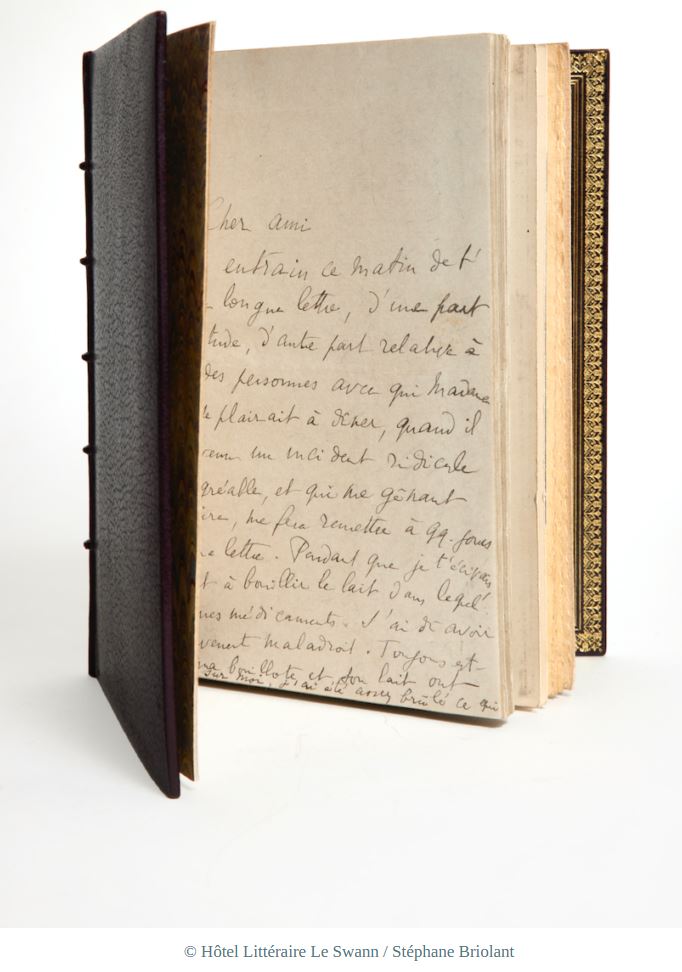 Cher ami
entrain ce matin de t'
longue lettre, d'une part
tude, d'autre part relative à
des personnes avec qui Madame
te plairait à dîner, quand il
un incident ridicule
gréable, et qui me gênant
ire, me fera remettre à qq. jours
lettre. Pendant que je t'écrivais
t à bouillir le lait dans lequel
mes médicaments. J'ai dû avoir
vement maladroit. Toujours est-
ma bouillote et son lait ont
sur moi, j'ai été assez brûlé ce qui
© Hôtel Littéraire Le Swann / Stéphane Briolant